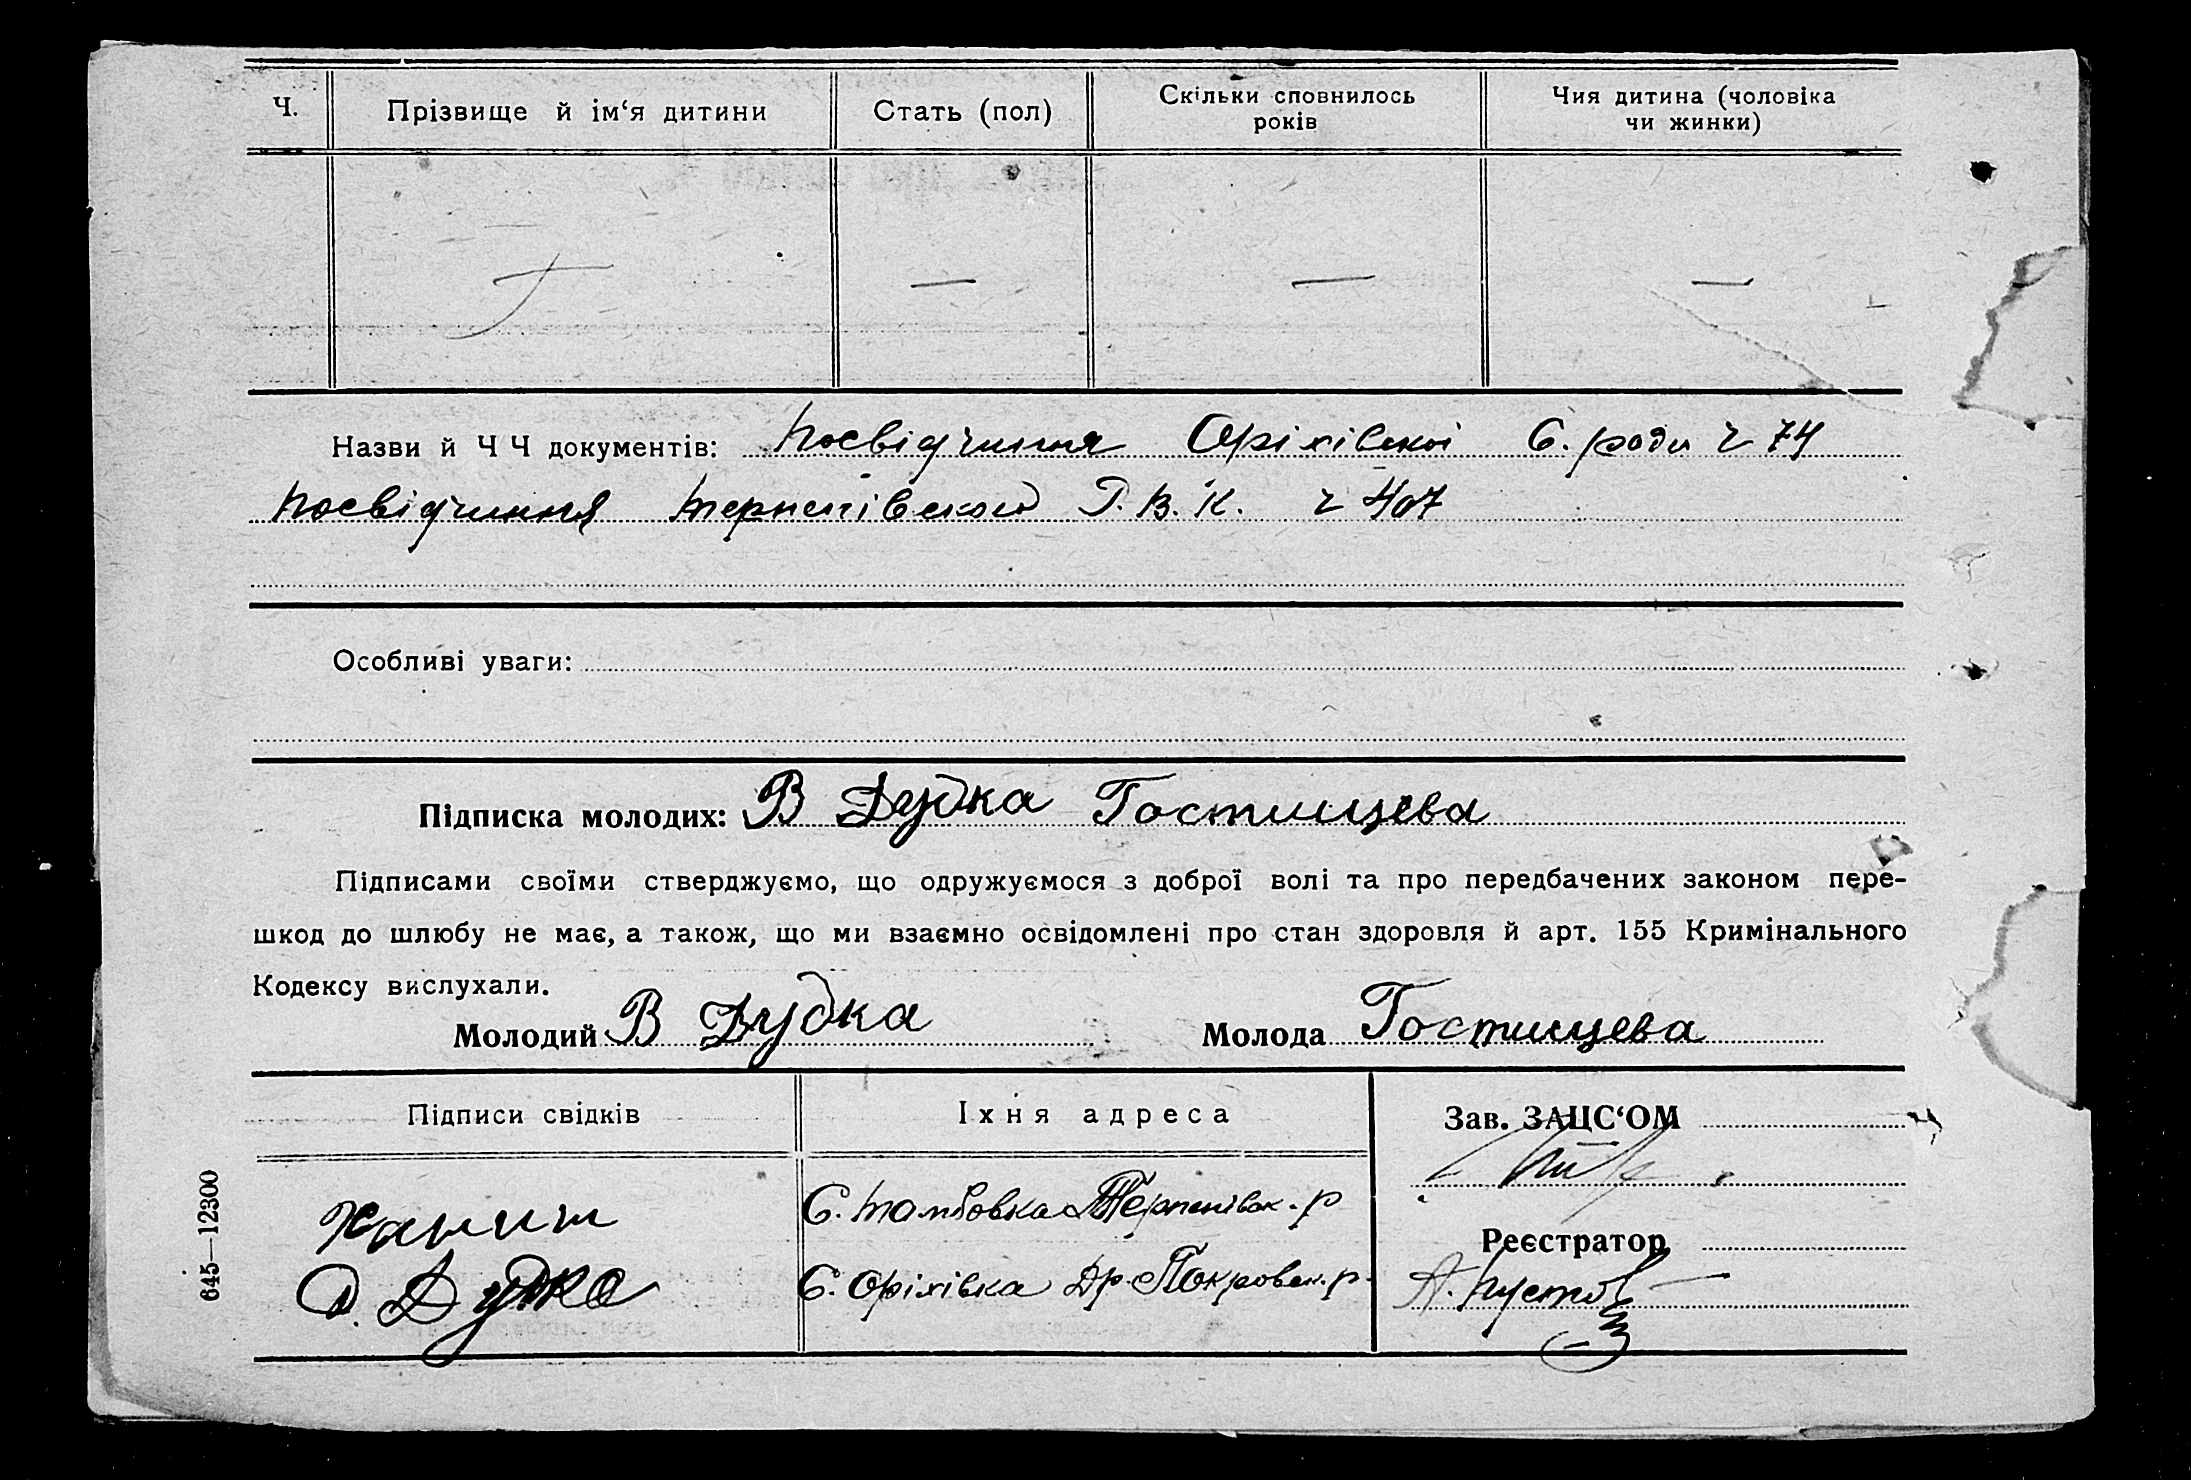 Ч. Прізвище й ім‘я дитини Стать (пол) Скільки сповнилось років Чия дитина (чоловіка чи жинки)
— — —
Назви й Ч Ч документів: Посвідчиння Оріхівської С. ради ч 74
Посвідчиння Терпенівського Р. В. К. ч 407
Особливі уваги:
Підписка молодих: В Дудка Гостищева
Підписами своїми стверджуємо, що одружуємося з доброї волі та про передбачених законом пере-
шкод до шлюбу не має, а також, що ми взаємно освідомлені про стан здоровля й арт. 155 Кримінального
Кодексу вислухали.
Молодий В Дудка Молода Гостищева
Підписи свідків Їхня адреса Зав. ЗАЦС‘ОМ
С. Тамбовка Терпенівск. р
Реєстратор
Д. Дудка С. Оріхівка Др. Покровск. р. А. Пустов
645—12300